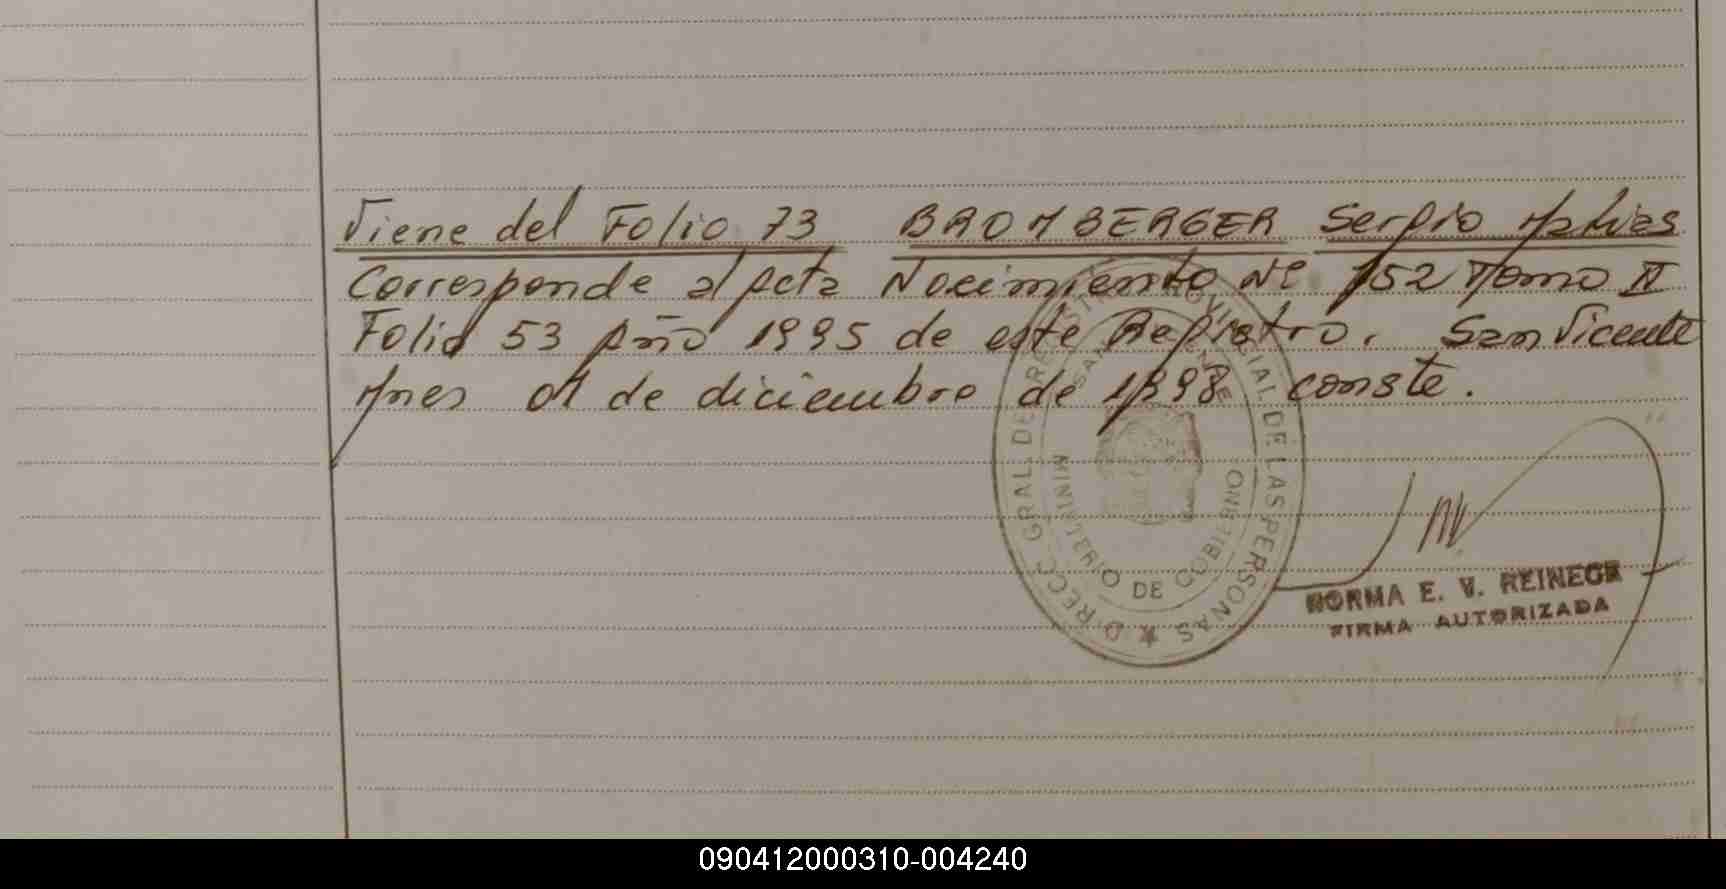 Viene del Folio 73 BROMBERGER Sergio Matias
Corresponde al Acta Nacimiento Nº 152 Tomo II
Folio 53 Año 1995 de este Registro. San Vicente
Mnes 01 de diciembre de 1998 conste.
DIRECC. GRAL. DEL REGISTRO PROVINCIAL DE LAS PERSONAS
SAN VICENTE
MINISTERIO DE GOBIERNO
NORMA E. V. REINEGR
FIRMA AUTORIZADA
090412000310-004240